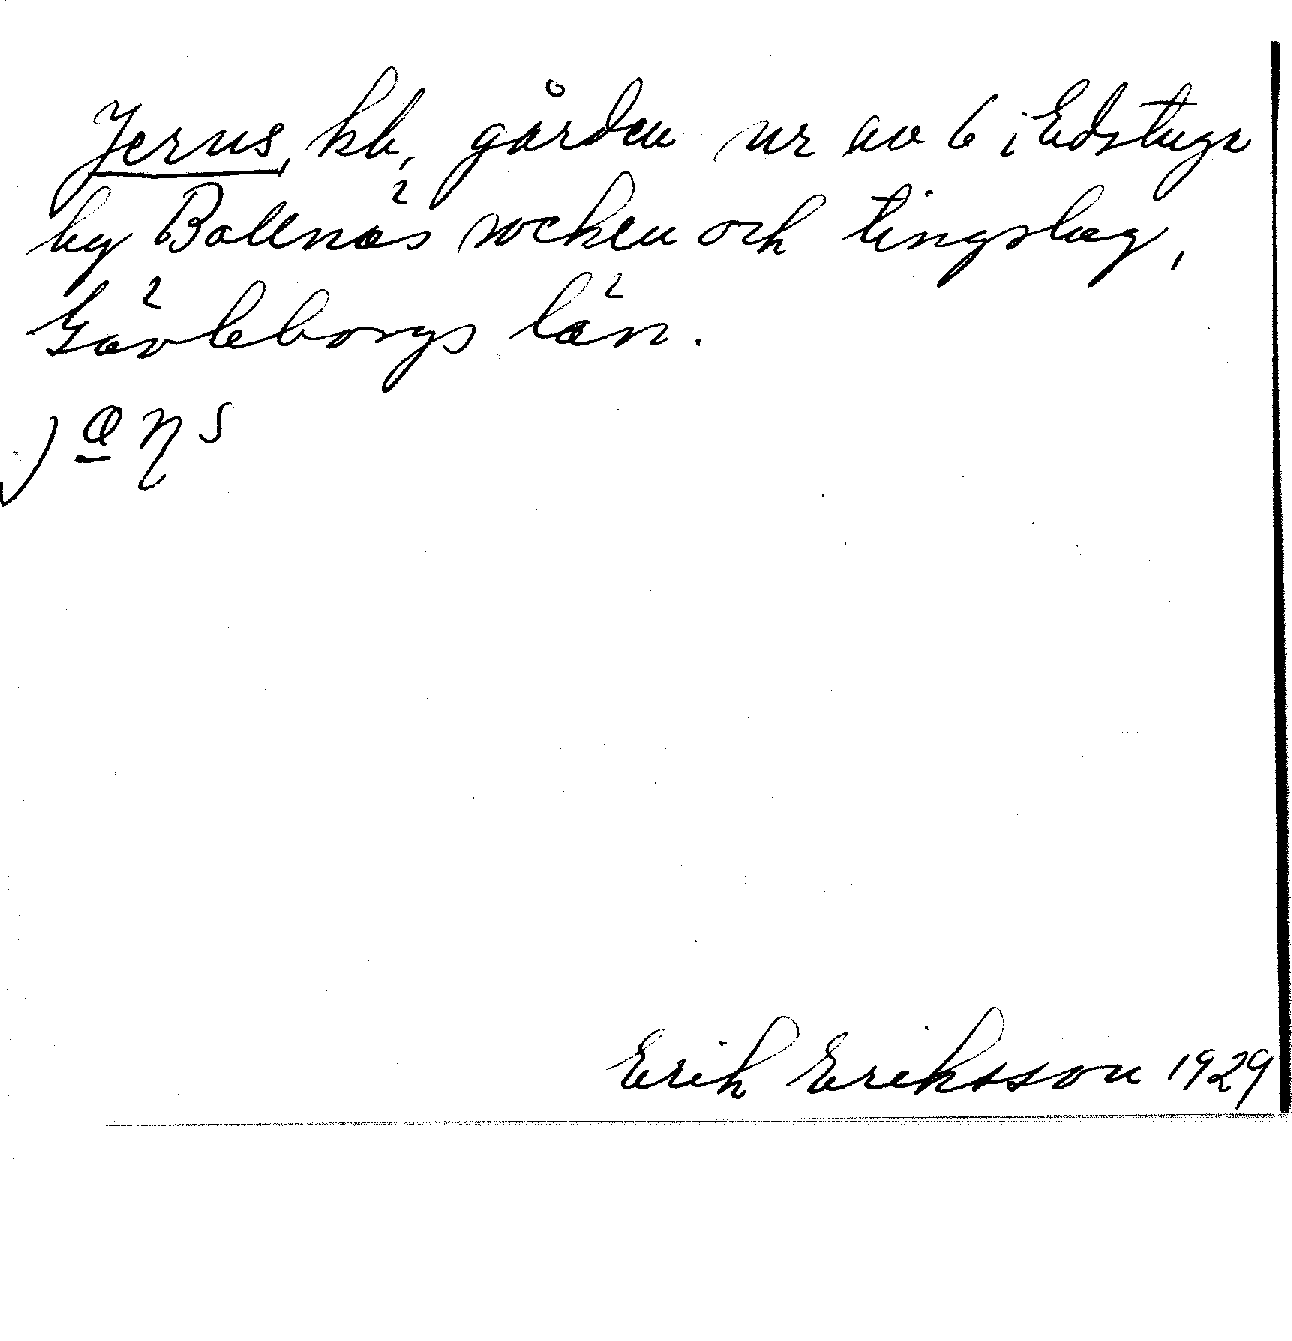 Jerus, kb, gården nr av 6 i Edstuga
by Bollnäs socken och tingslag,
Gävleborgs län.
Erik Eriksson 1929